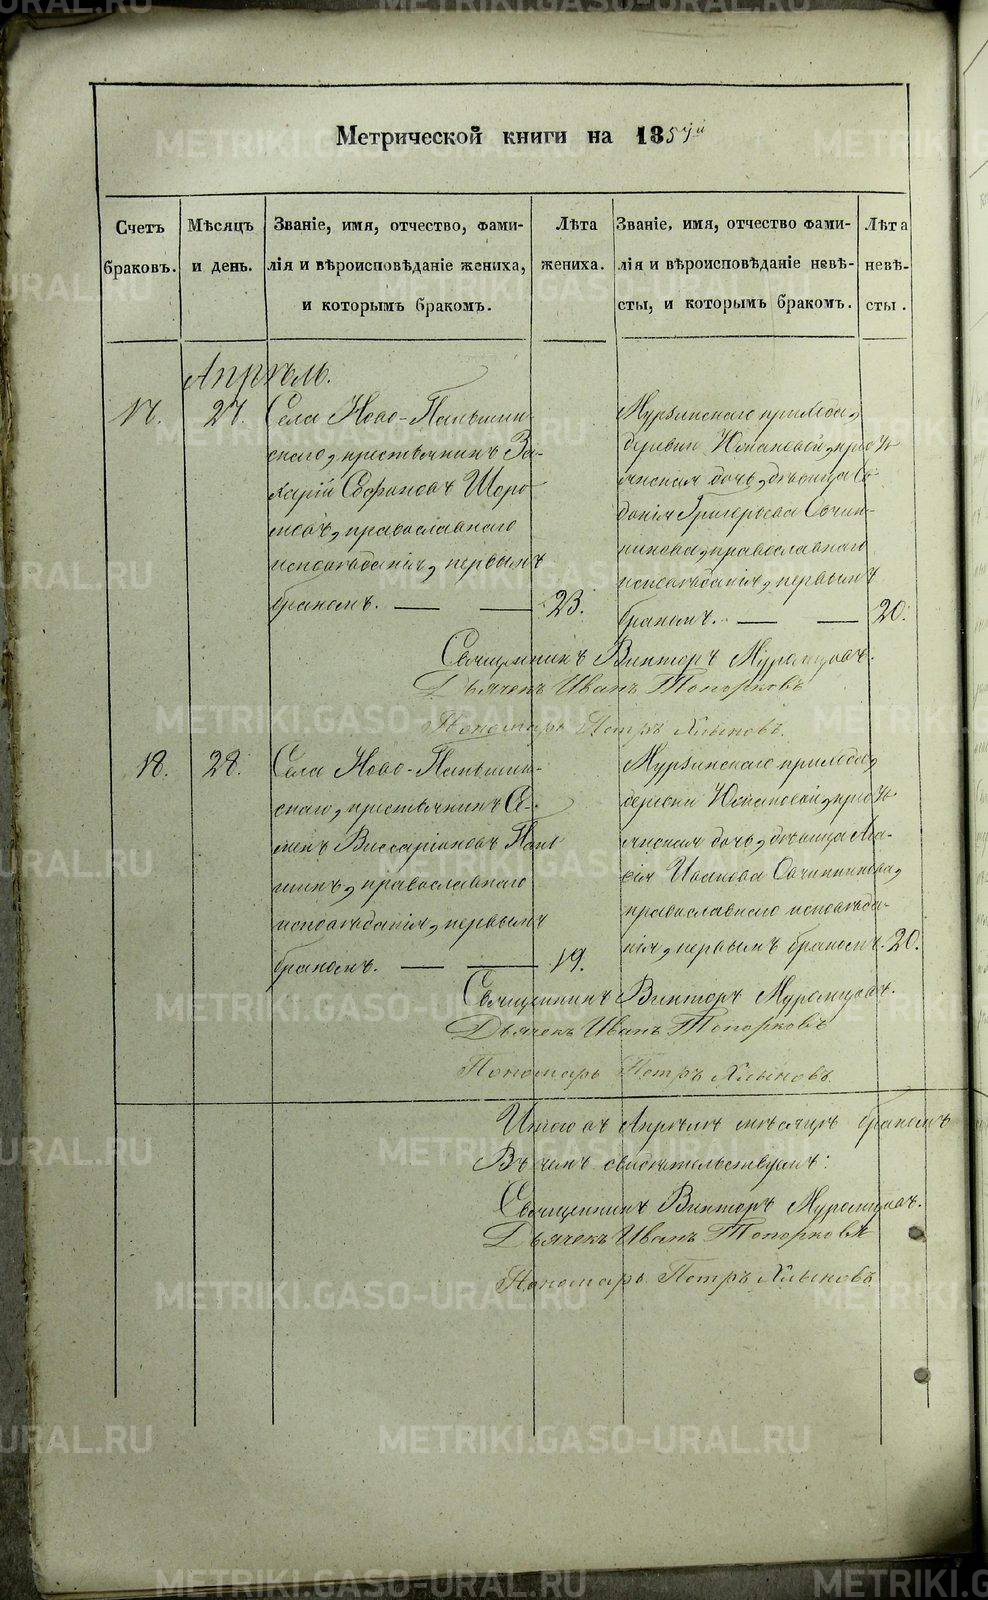 Метрической книги на 185
Счетъ браковъ.
Мѣсяцъ и день.
Званіе, имя, отчество, фами-
лія и вѣроисповѣданіе жениха,
и которымъ бракомъ.
Лѣта жениха.
Званіе, имя, отчество фами-
лія и вѣроисповѣданіе невѣ-
сты, и которымъ бракомъ.
Лѣта невѣ-
сты.
Апрѣль.
17.
27.
Села Ново-Паньшин-
скаго, крестьянинъ За-
харій Софоновъ
православнаго
исповѣданія, первымъ
бракомъ.
23.
Мурзинскаго прихода,
деревни Южаковой, крестья-
нская дочь, дѣвица Ев-
докія Григорьева Овчин-
никова, православнаго
исповѣданія, первымъ
бракомъ.
20.
Священникъ Викторъ Муромцовъ.
Дьячекъ Иванъ Топорковъ
Пономарь Петръ Хлыновъ.
18.
28.
Села Ново-Паньшин-
скаго, крестьянинъ Се-
менъ Виссаріоновъ Пань
шинъ, православнаго
исповѣданія, первымъ
бракомъ.
19.
Мурзинскаго прихода,
деревни Южаковой, крестья-
нская дочь, дѣвица Ма-
рія Иванова Овчинникова,
православнаго исповѣда-
нія, первымъ бракомъ.
20.
Священникъ Викторъ Муромцовъ.
Дьячекъ Иванъ Топорковъ
Пономарь Петръ Хлыновъ.
Итого въ Апрѣлѣ мѣсяцѣ браковъ
Въ чемъ свидѣтельствуемъ:
Священникъ Викторъ Муромцовъ.
Дьячекъ Иванъ Топорковъ
Пономарь Петръ Хлыновъ
METRIKI.GASO-URAL.RU